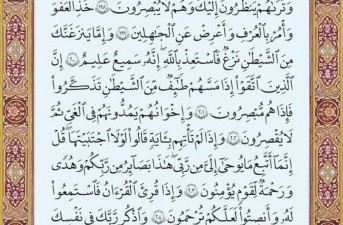 وَتَرَىٰهُمْ يَنظُرُونَ إِلَيْكَ وَهُمْ لَا يُبْصِرُونَ ۝١٩٨ خُذِ ٱلْعَفْوَ
وَأْمُرْ بِٱلْعُرْفِ وَأَعْرِضْ عَنِ ٱلْجَٰهِلِينَ ۝١٩٩ وَإِمَّا يَنزَغَنَّكَ
مِنَ ٱلشَّيْطَٰنِ نَزْغٌ فَٱسْتَعِذْ بِٱللَّهِ إِنَّهُۥ سَمِيعٌ عَلِيمٌ ۝٢٠٠ إِنَّ
ٱلَّذِينَ ٱتَّقَوْا۟ إِذَا مَسَّهُمْ طَٰٓئِفٌ مِّنَ ٱلشَّيْطَٰنِ تَذَكَّرُوا۟
فَإِذَا هُم مُّبْصِرُونَ ۝٢٠١ وَإِخْوَٰنُهُمْ يَمُدُّونَهُمْ فِى ٱلْغَىِّ ثُمَّ
لَا يُقْصِرُونَ ۝٢٠٢ وَإِذَا لَمْ تَأْتِهِم بِـَٔايَةٍ قَالُوا۟ لَوْلَا ٱجْتَبَيْتَهَا ۚ قُلْ
إِنَّمَآ أَتَّبِعُ مَا يُوحَىٰٓ إِلَىَّ مِن رَّبِّى ۚ هَٰذَا بَصَآئِرُ مِن رَّبِّكُمْ وَهُدًى
وَرَحْمَةٌ لِّقَوْمٍ يُؤْمِنُونَ ۝٢٠٣ وَإِذَا قُرِئَ ٱلْقُرْءَانُ فَٱسْتَمِعُوا۟
لَهُۥ وَأَنصِتُوا۟ لَعَلَّكُمْ تُرْحَمُونَ ۝٢٠٤ وَٱذْكُر رَّبَّكَ فِى نَفْسِكَ